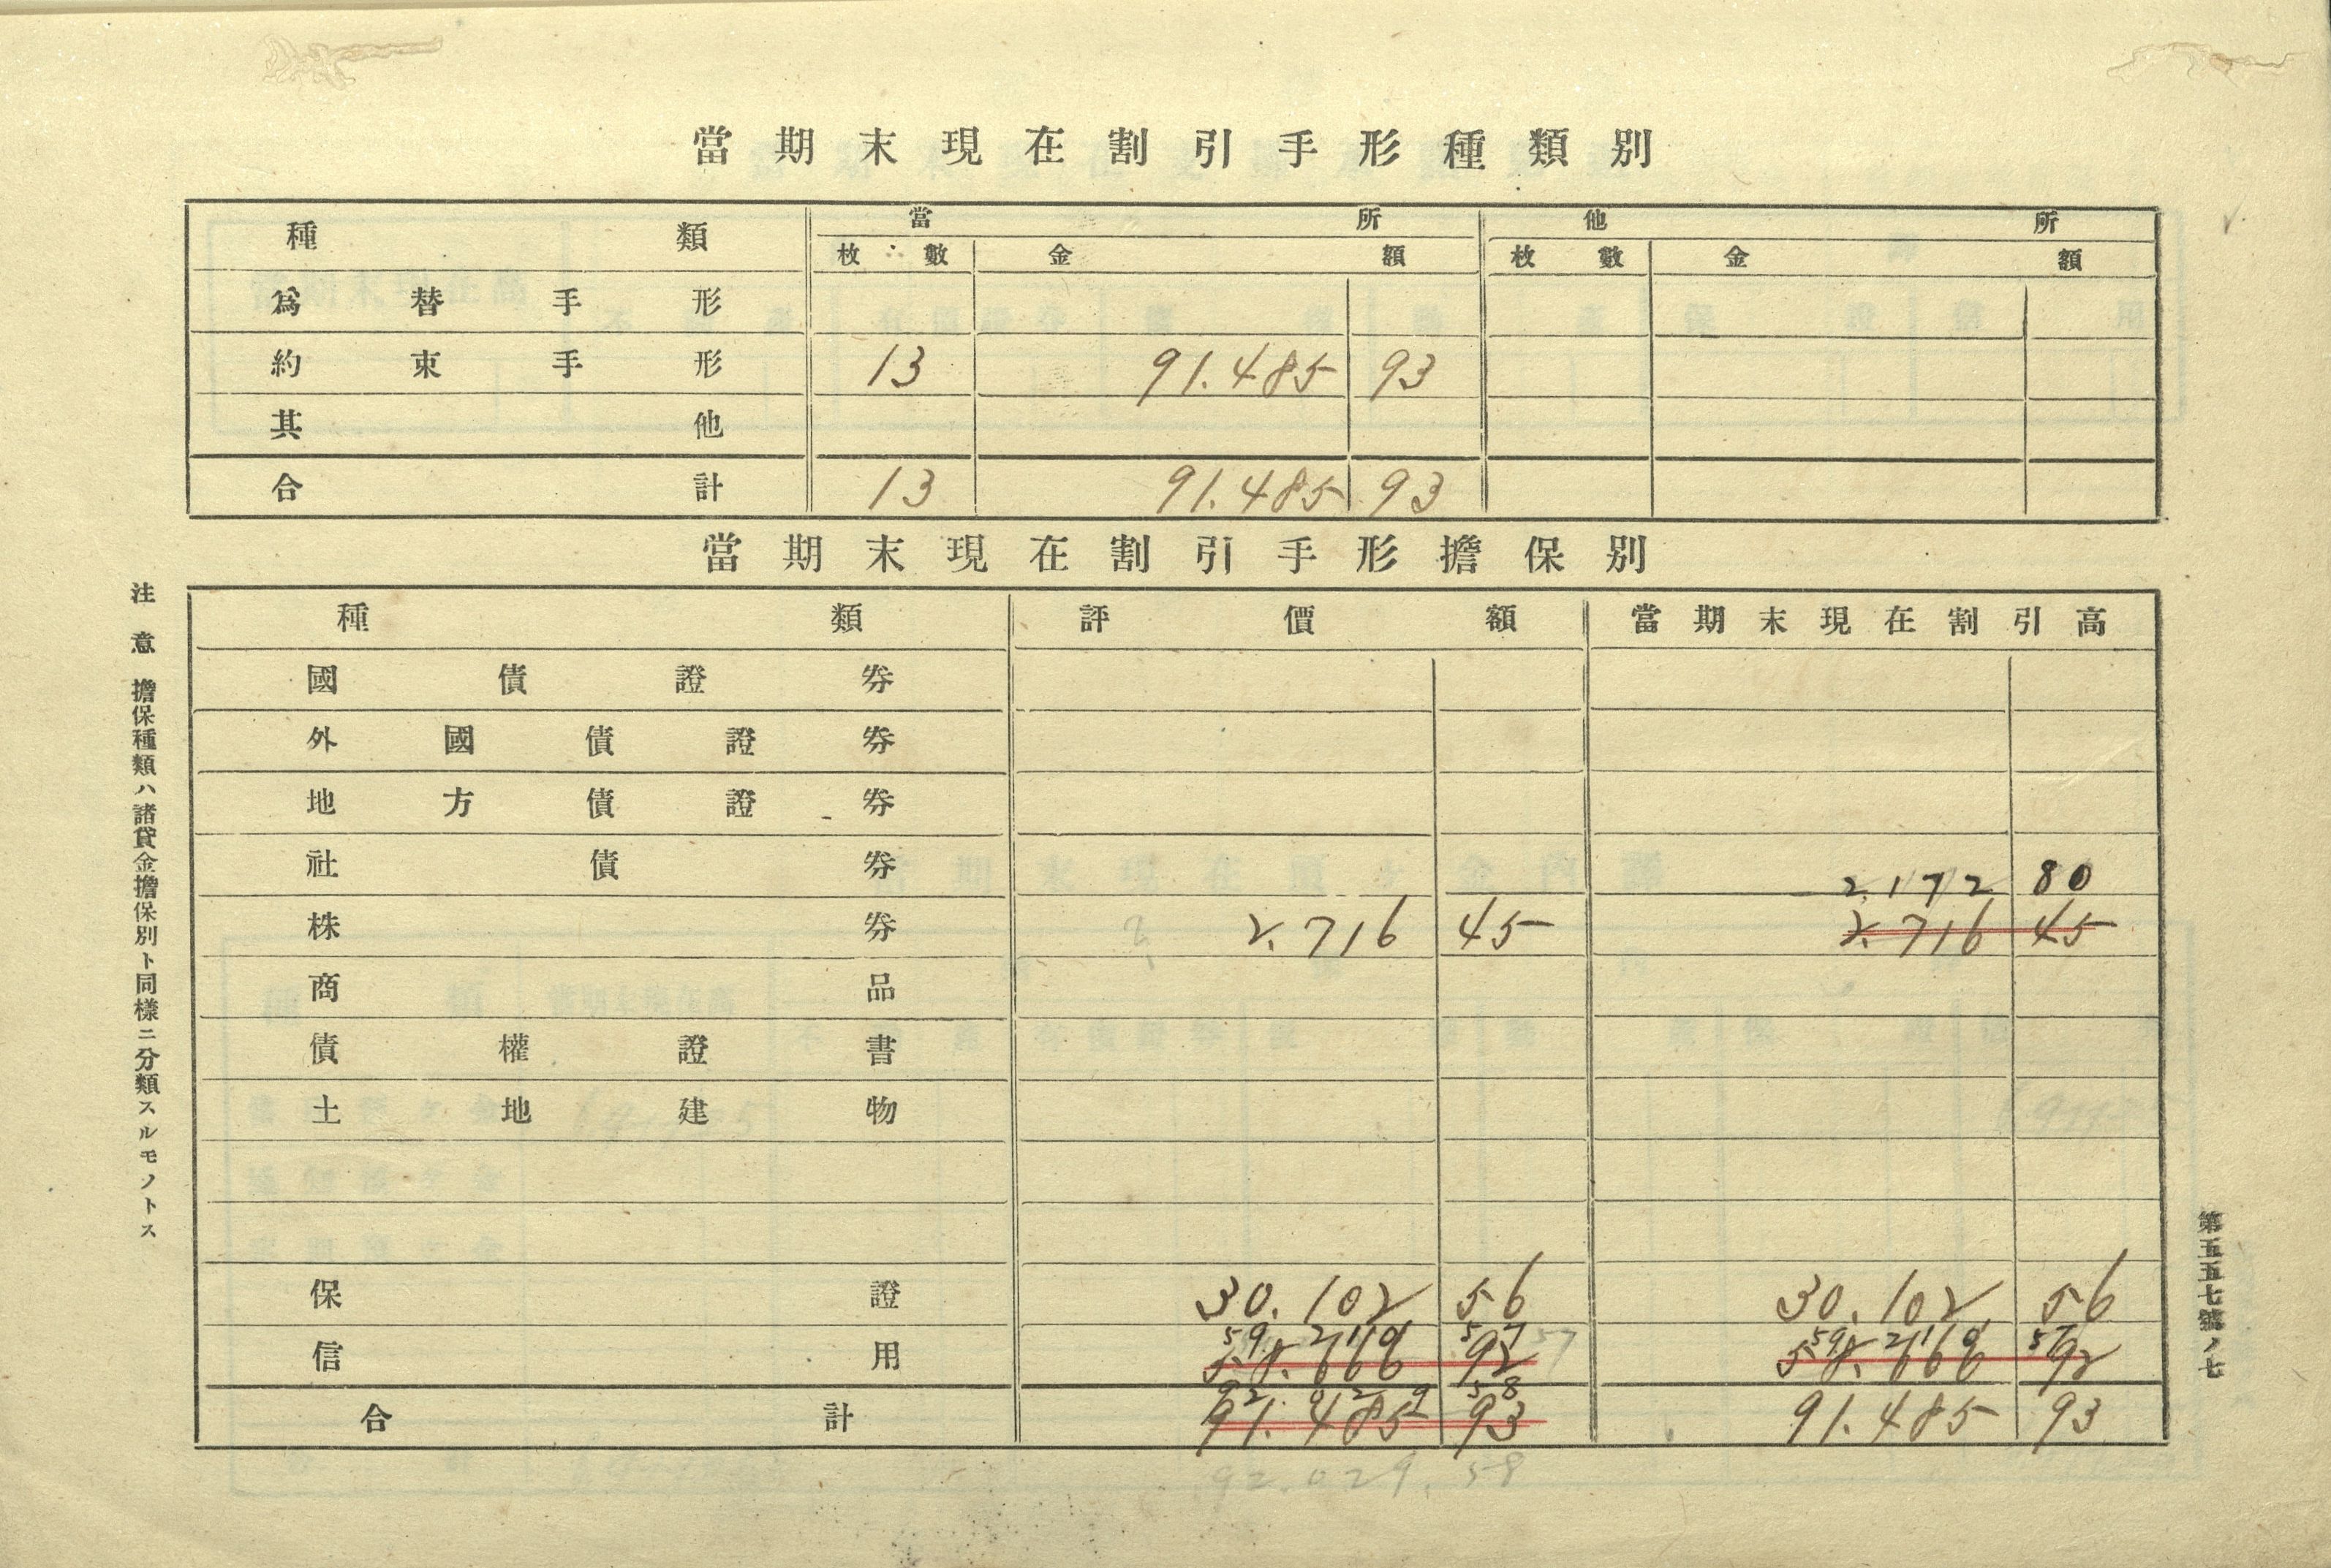 當期末現在割引手形種類別
種類 當所 他所
枚數 金額 枚數 金額
爲替手形
約束手形 13 91.485 93
其他
合計 13 91.485 93
當期末現在割引手形擔保別
種類 評價額 當期末現在割引高
國債證券
外國債證券
地方債證券
社債券
2.172 80
株券 2.716 45 2.716 45
商品
債權證書
土地建物
保證 30.102 56 30.102 56
59.210 57 57 59.210 57
信用 58.666 92 58.666 92
92.029 58
合計 91.485 93 91.485 93
92.029.58
注意 擔保種類ハ諸貸金擔保別ト同樣ニ分類スルモノトス
第五五七號ノ七